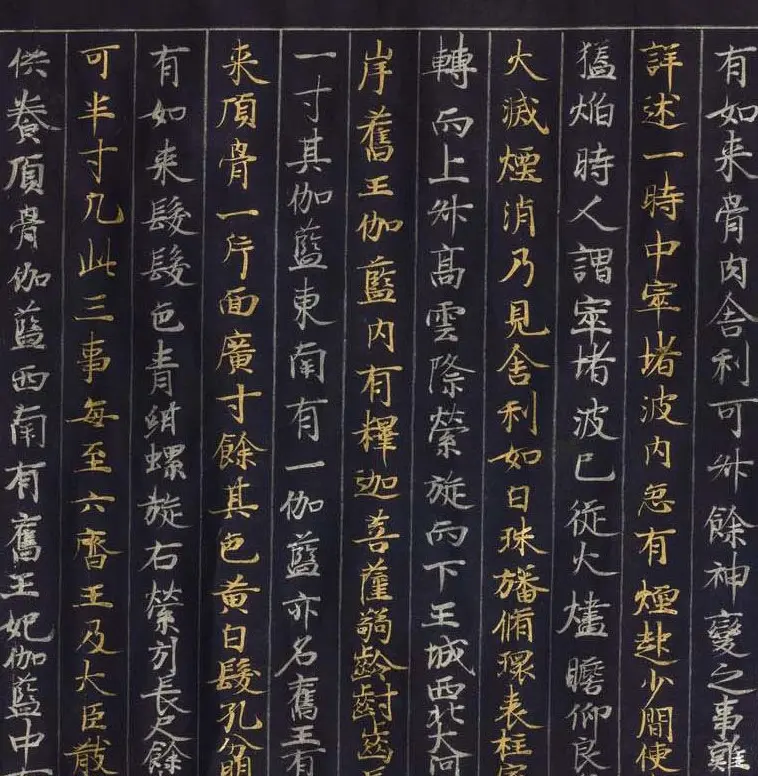 有如来骨肉舎利可升餘神變之事難
詳述一時中窣堵波内忽有煙起少間便
猛焰時人謂窣堵波已從火燼瞻仰良
火滅煙消乃見舎利如白珠旛循環表柱宛
轉而上升高雲際縈旋而下王城西北大河
岸舊王伽藍内有釋迦菩薩弱齡齔齒長
一寸其伽藍東南有一伽藍亦名舊王有
来頂骨一片面廣寸餘其色黄白髮孔分明
有如来髮髮色青紺螺旋右縈引長尺餘
可半寸凡此三事每至六齋王及大臣散
供養頂骨伽藍西南有舊王妃伽藍中有